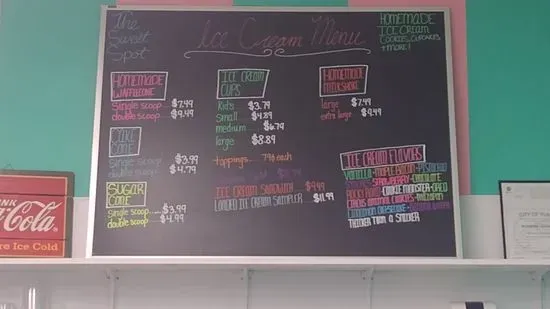 The Sweet Spot
Ice Cream Menu
HOMEMADE
ICE CREAM
COOKIES, CUPCAKES
+ MORE!
HOMEMADE
WAFFLECONE
Single scoop.... $7.99
double scoop.... $9.49
CAKE
CONE
Single scoop... $3.99
double scoop... $4.79
SUGAR
CONE
Single scoop..... $3.99
double scoop.... $4.99
ICE CREAM
CUPS
Kid's $3.79
Small $4.89
medium.... $6.79
large $8.89
toppings... 79¢ each
ICE CREAM SANDWICH $9.49
LOADED ICE CREAM SAMPLER $11.99
HOMEMADE
MILKSHAKE
large $7.99
extra large $9.99
ICE CREAM FLAVORS
VANILLA - MAPLE BACON - PISTACHIO
STRAWBERRY - CHOCOLATE
COOKIE MONSTER - OREO
CIRCUS ANIMAL COOKIES
THICKER THAN A SNICKER
DRINK
Coca-Cola
Ice Cold
CITY OF